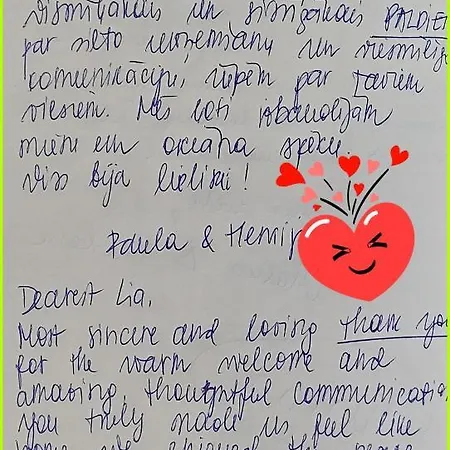 vissmīļākais un sirsnīgākais PALDIES
par silto uzņemšanu un viesmīlīgo
komunikāciju, rūpēm par saviem
viesiem. Mēs ļoti izbaudījām
mieru un okeāna spēku.
Viss bija lieliski!
Paula &
Dearest Lia,
Most sincere and loving thank you
for the warm welcome and
amazing, thoughtful communication,
you truly made us feel like